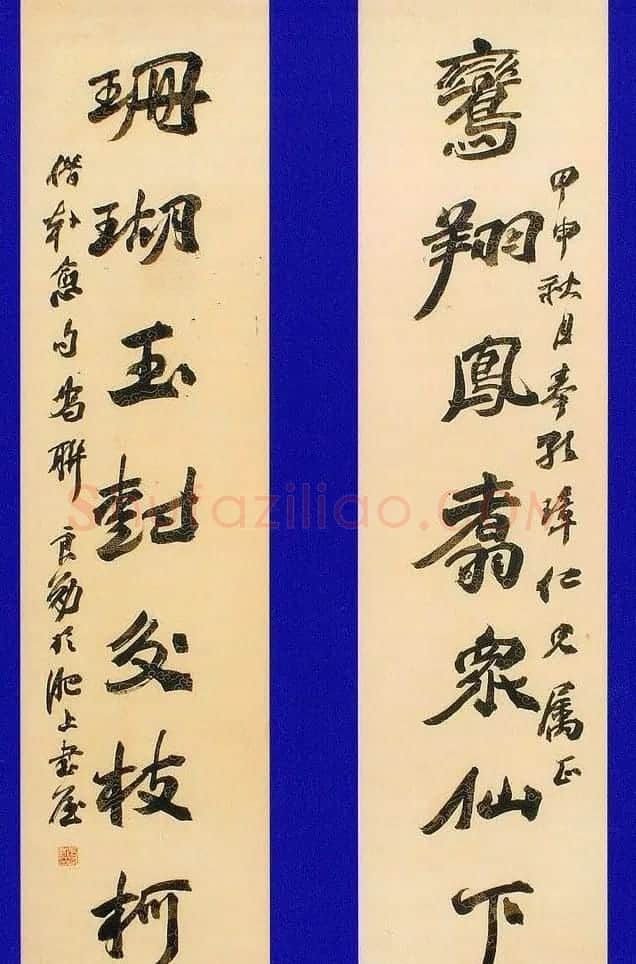 鸞翔鳳翥衆仙下
甲申秋月奉璋仁兄属正
珊瑚玉尌交枝柯
借韩愈句为聯 良於淝上書屋
Shufaziliao.COM